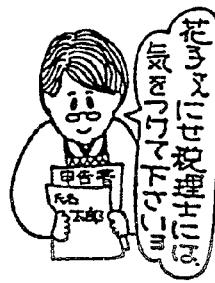 花子さんにせ税理士には、
気をつけて下さいヨ
申告書
氏名
太郎